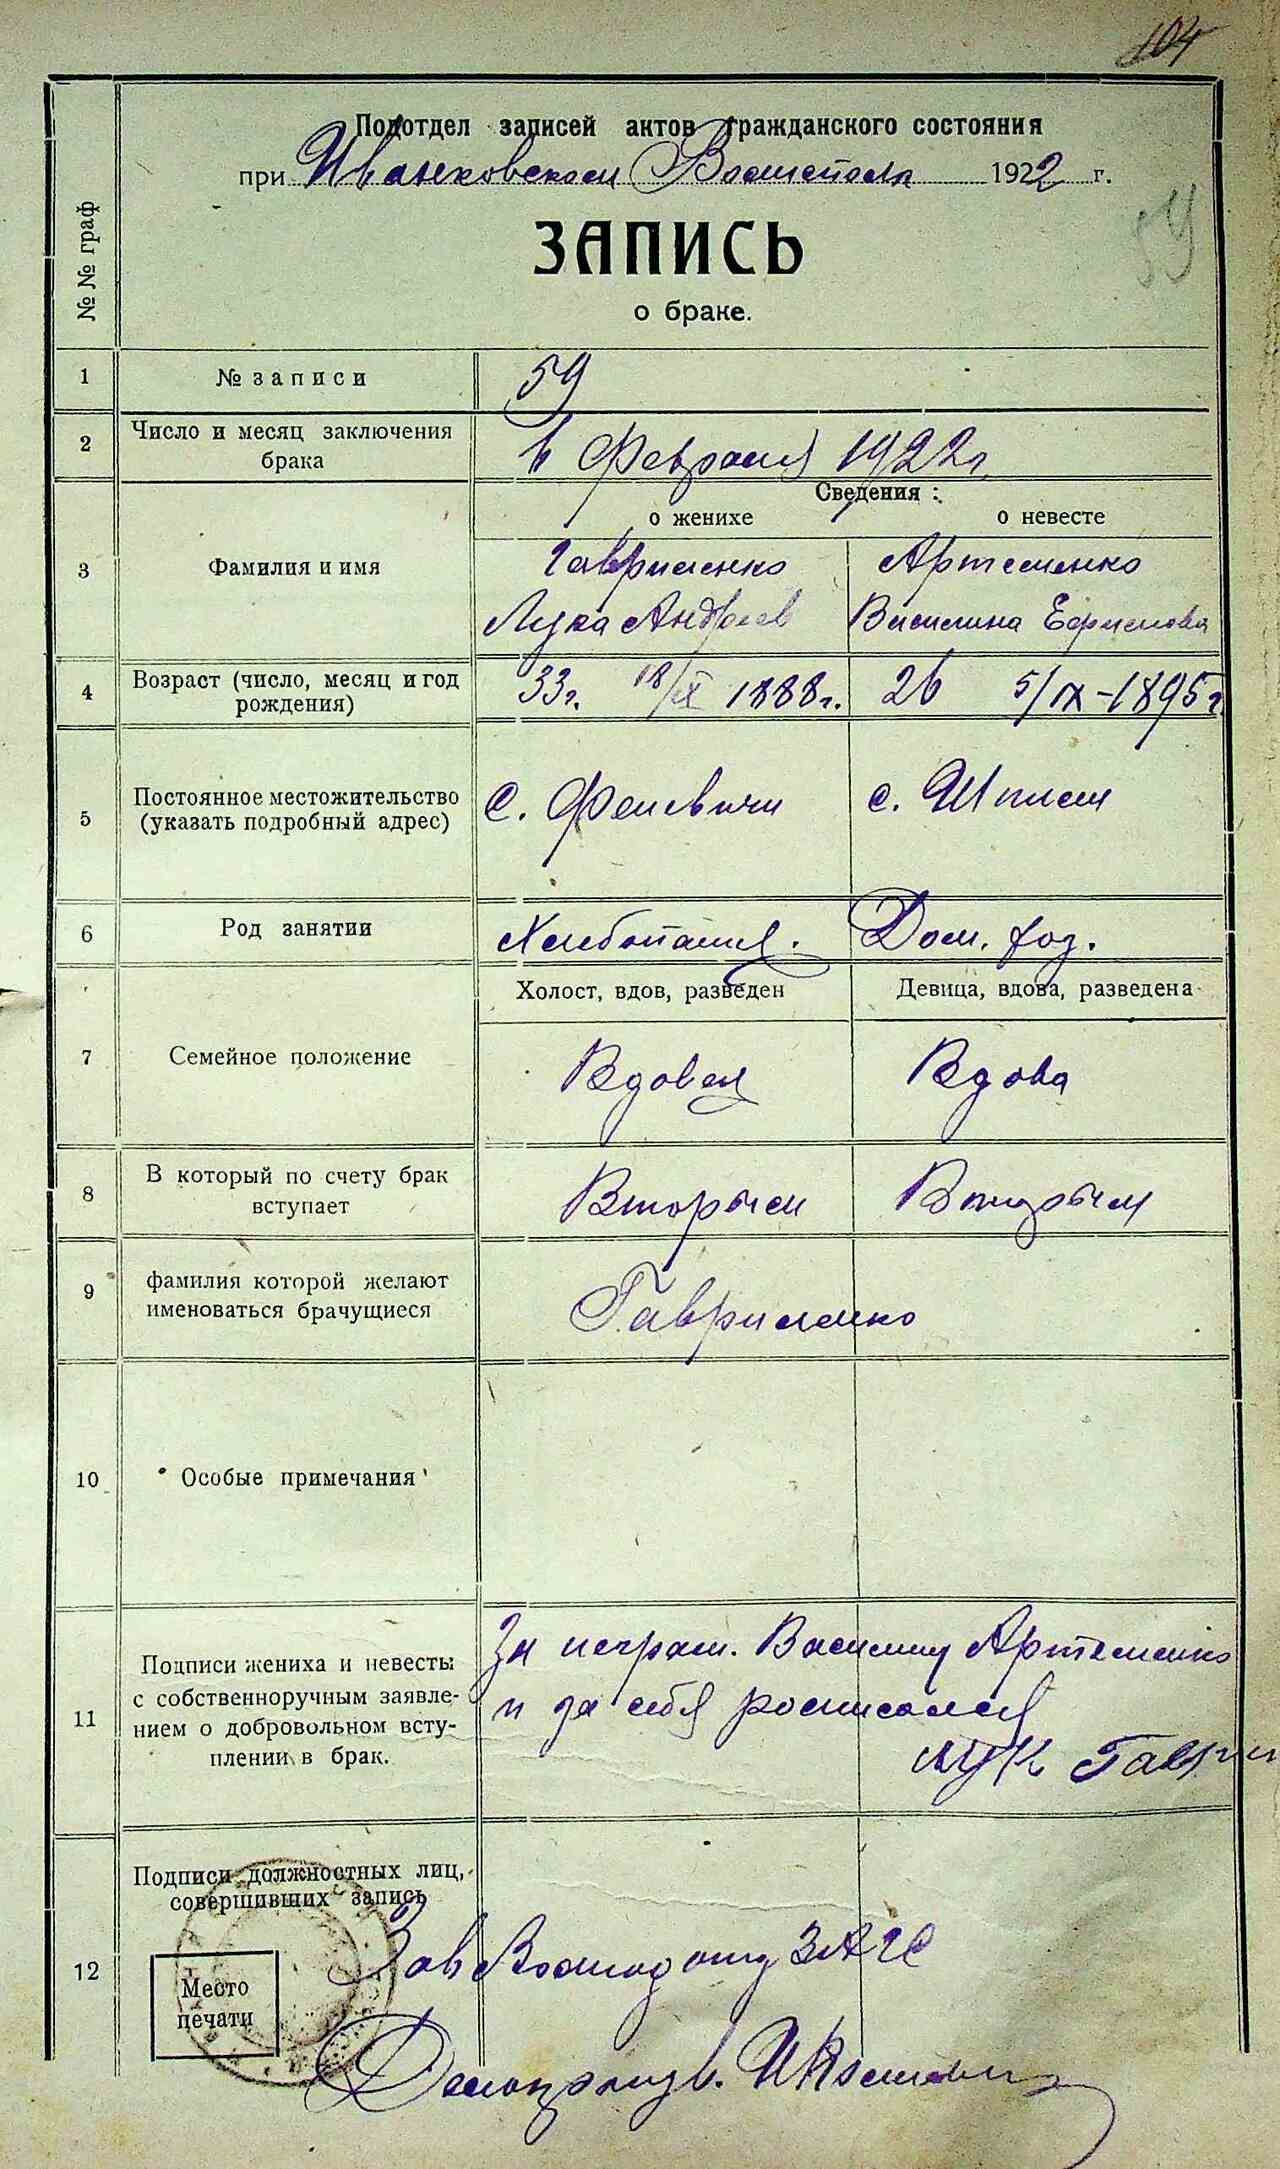 104
Подотдел записей актов гражданского состояния
при Иванковском 1922 г.
59
№ № граф
ЗАПИСЬ
о браке.
1 № записи 59
2 Число и месяц заключения
брака
6 Февраля 1922 г.
Сведения:
о женихе о невесте
3 Фамилия и имя
Гавриленко Артеменко
Лука Андреев Василина Ефимова
4 Возраст (число, месяц и год
рождения)
33 г. 18/IX 1888 г. 26 5/IX-1895 г.
5 Постоянное местожительство
(указать подробный адрес)
с. Феневичи с. Шпили
6 Род занятии Хлебопашец. Дом. хоз.
Холост, вдов, разведен Девица, вдова, разведена
7 Семейное положение Вдовец Вдова
8 В который по счету брак
вступает
Вторым Вторым
9 фамилия которой желают
именоваться брачущиеся
Гавриленко
10 Особые примечания
11 Подписи жениха и невесты
с собственноручным заявле-
нием о добровольном всту-
плении в брак.
За неграм. Василину Артеменко
и за себя росписался
Лук Гаври
12 Подписи должностных лиц,
совершивших запись
Место
печати
Зав ЗАГС
Делопроизв.